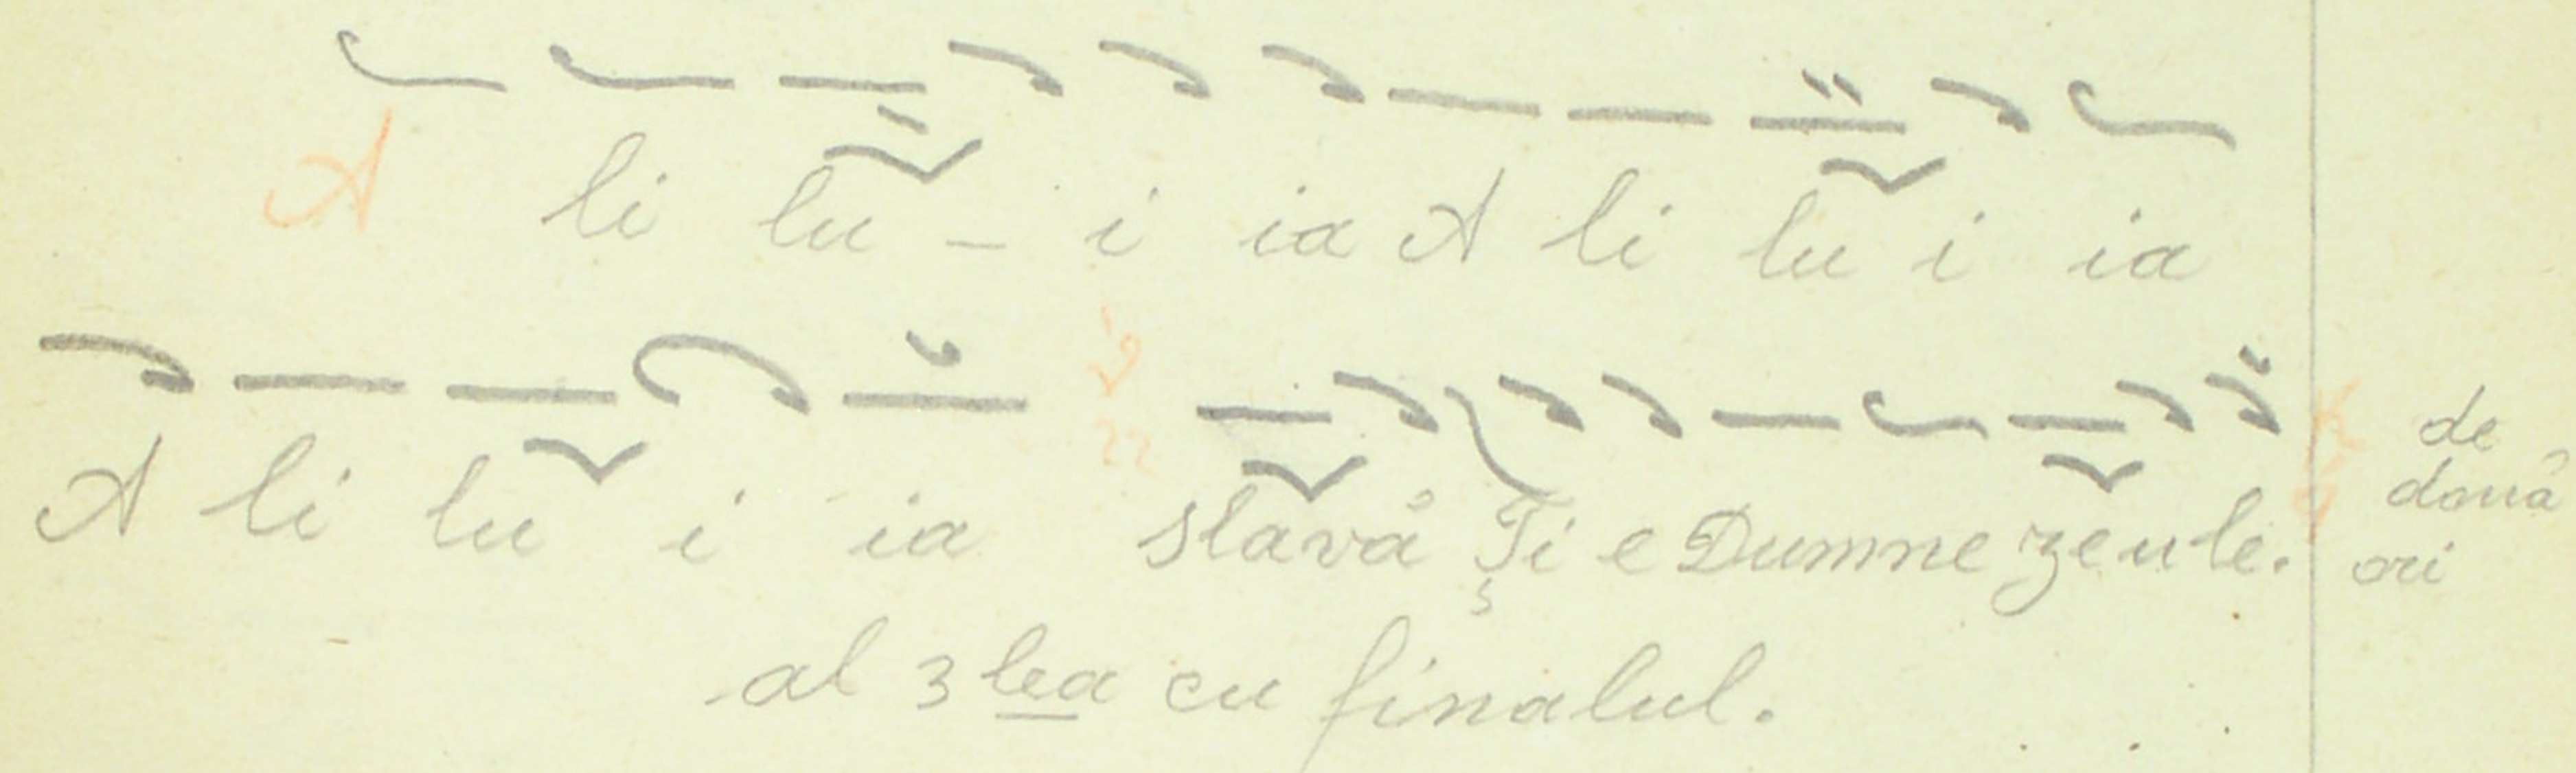 A li lu - i ia A li lu i ia
A li lu i ia slavă Ţi e Dumne ze u le. de două ori
al 3 lea cu finalul.